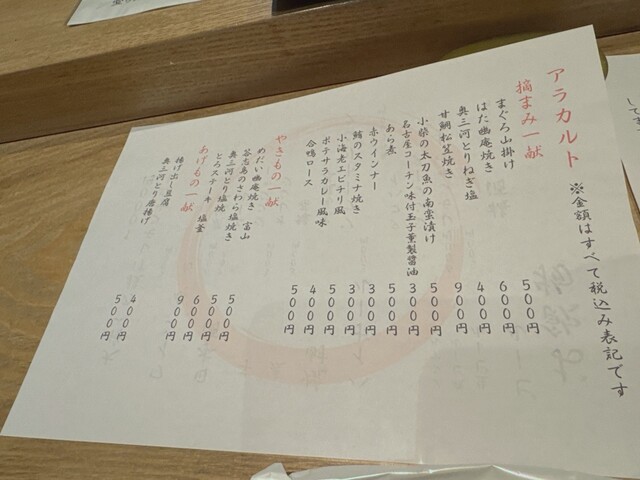 アラカルト ※金額はすべて税込み表記です
摘まみ一献
まぐろ山掛け 500円
はた幽庵焼き 600円
奥三河とりねぎ塩 400円
甘鯛松笠焼き 900円
小柴の太刀魚の南蛮漬け 500円
名古屋コーチン味付玉子薫製醤油 300円
あら煮 500円
赤ウインナー 300円
鯖のスタミナ焼き 300円
小海老エビチリ風 500円
ポテサラカレー風味 400円
合鴨ロース 500円
やきもの一献
めだい幽庵焼き 富山 500円
答志島のさわら塩焼き 500円
奥三河とり塩焼 600円
とろステーキ 塩釜 900円
あげもの一献
揚げ出し豆腐 400円
奥三河とり唐揚げ 500円